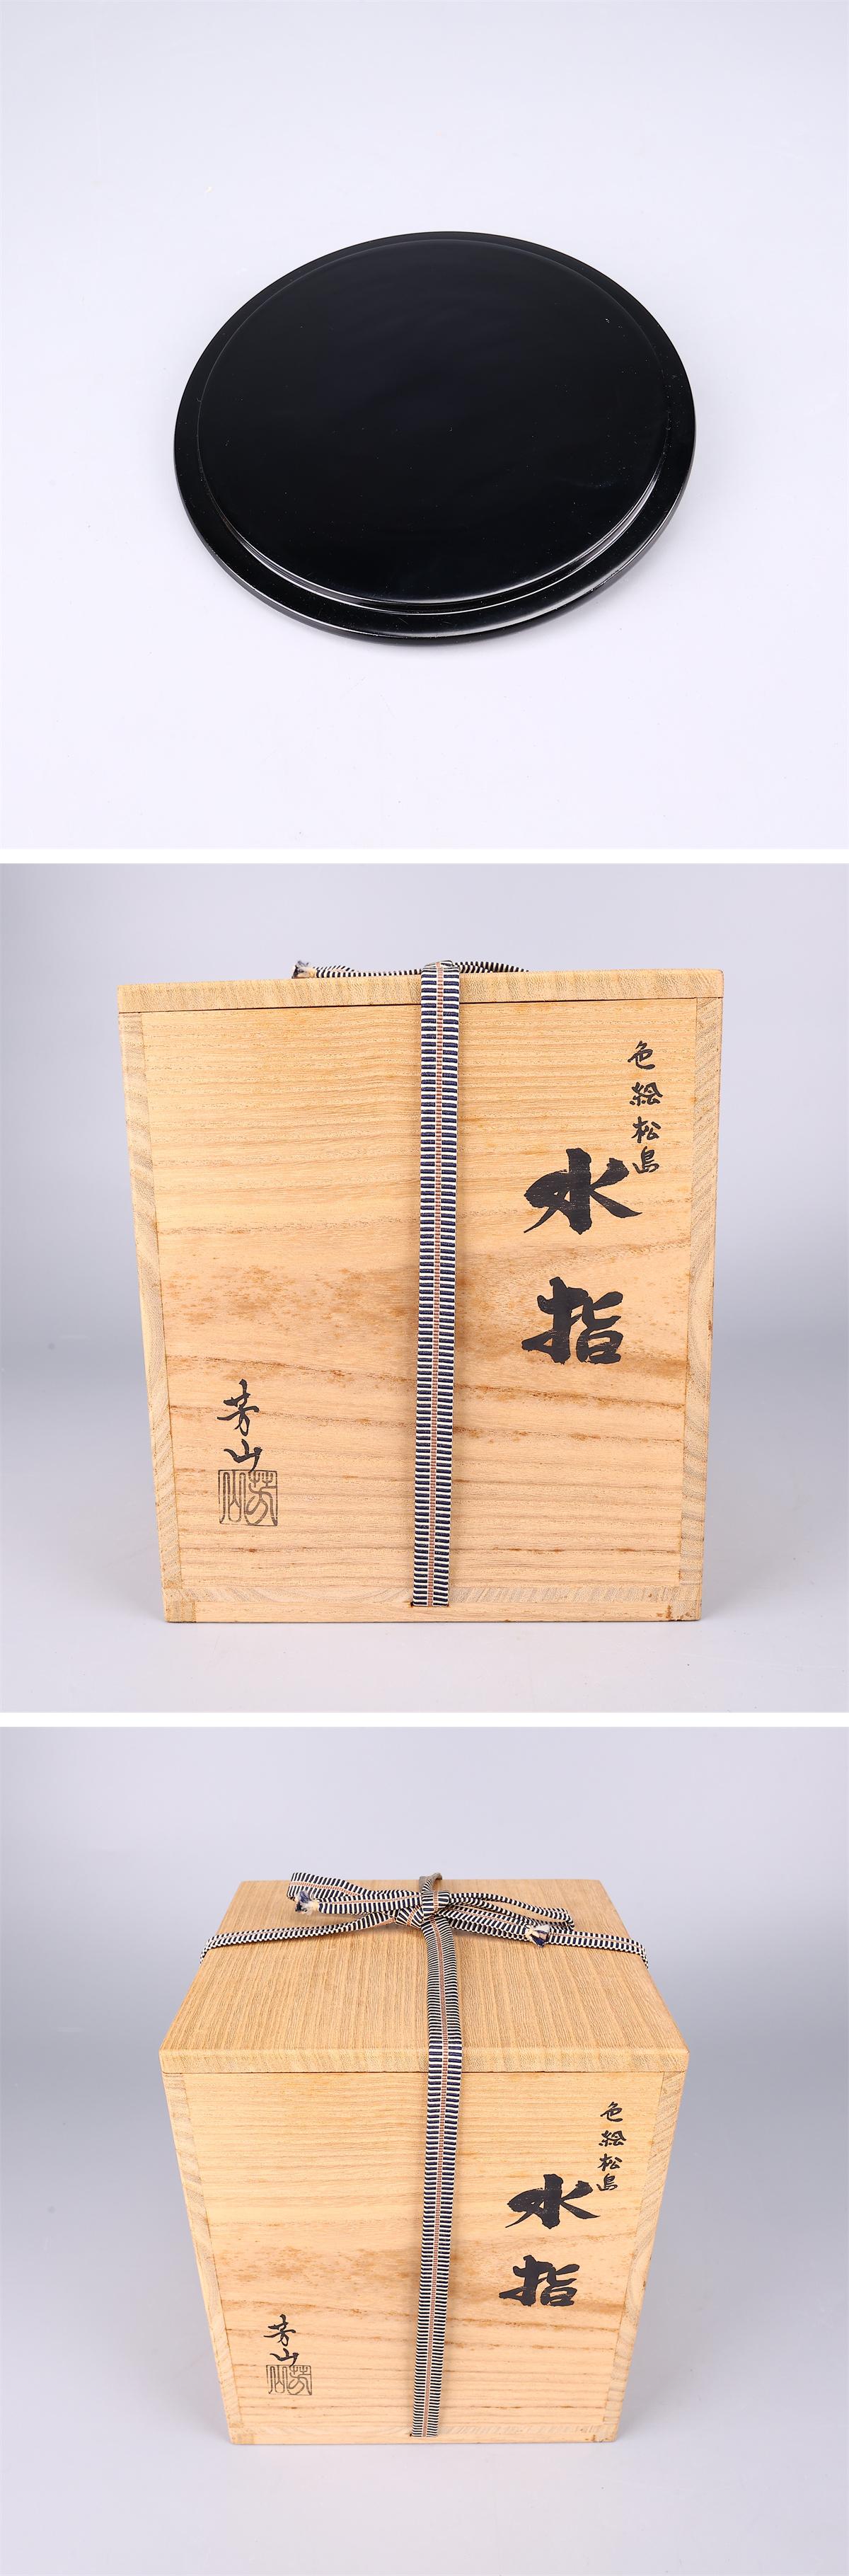 色絵松島
水指
芳山
芳山
色絵松島
水指
芳山
芳山